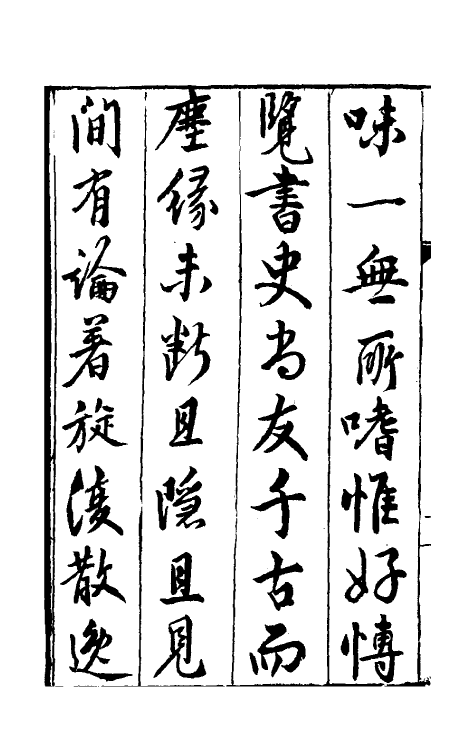 味一無所嗜惟好博
覽書史尚友千古而
塵緣未斷且隱且見
間有論著旋復散逸